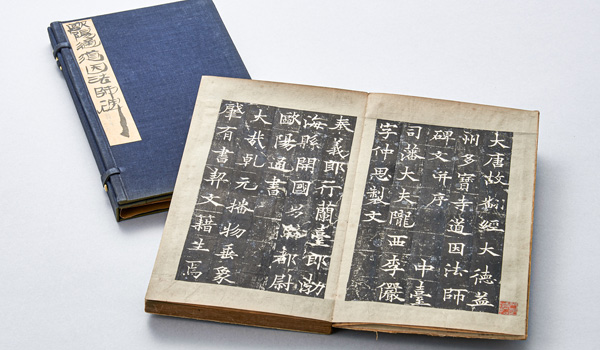 歐陽通道因法師碑
大唐故翻經大德益
州多寶寺道因法師
碑文并序 中臺
司藩大夫隴西李儼
字仲思製文
奉義郎行蘭臺郎渤
海縣開國男騎都尉
歐陽通書
大哉乾元播物垂象
肇有書契文籍生焉